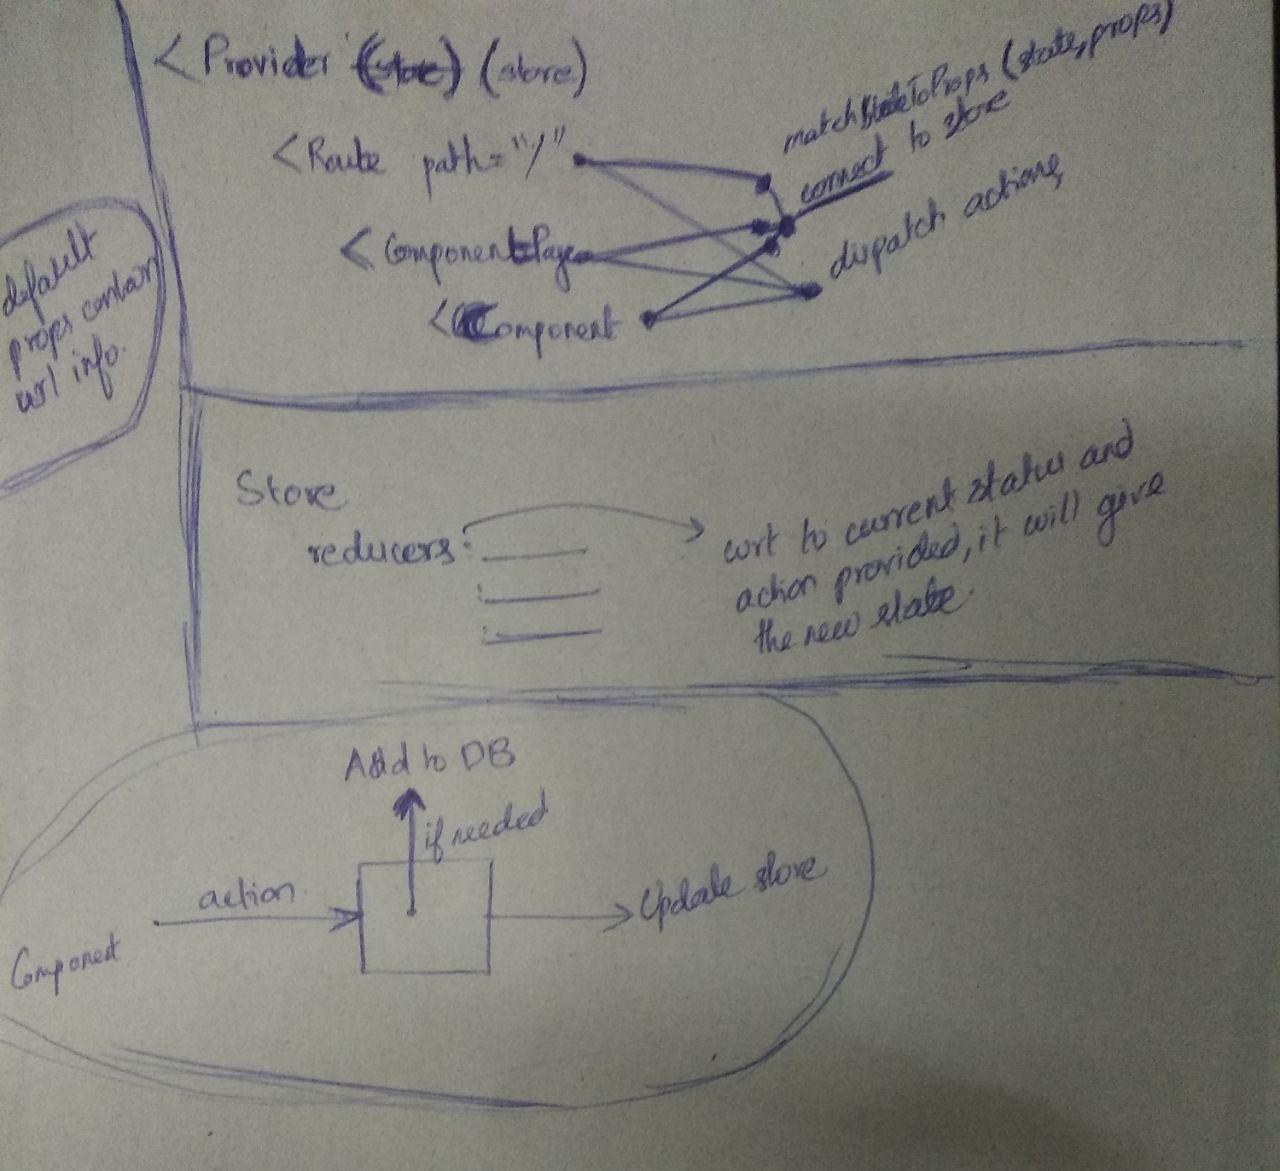 <Provider (store) (store)
<Route path="/"
<ComponentPage
<Component
matchStateToProps (state, props)
connect to store
dispatch actions
default
props contain
url info.
Store
reducers:
wrt to current status and
action provided, it will give
the new state.
Add to DB
if needed
action
Component
Update store